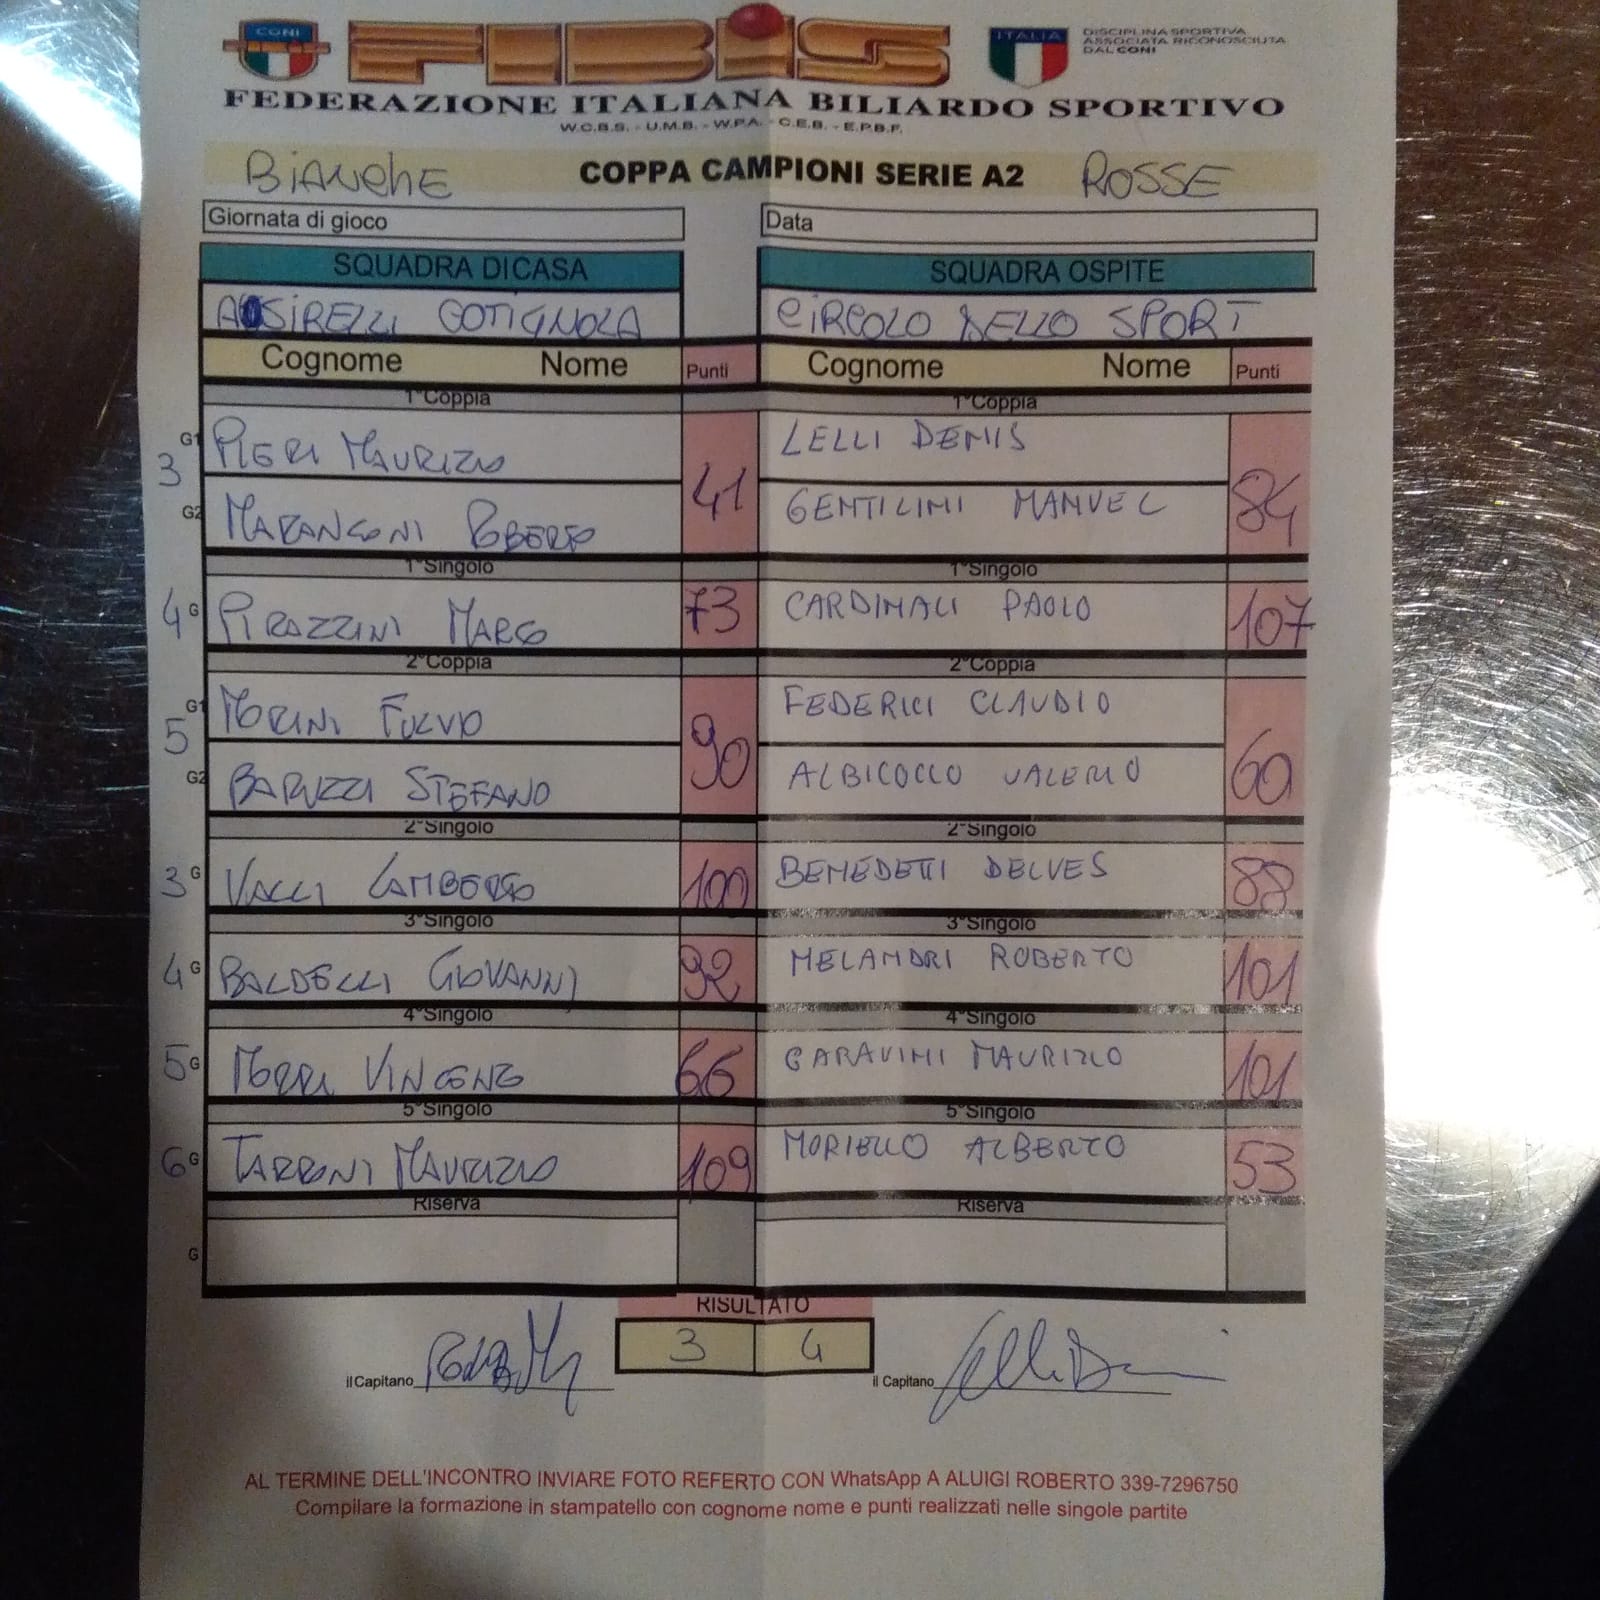 CONI
FIBiS
ITALIA
DISCIPLINA SPORTIVA
ASSOCIATA RICONOSCIUTA
DAL CONI
FEDERAZIONE ITALIANA BILIARDO SPORTIVO
W.C.B.S. - U.M.B. - W.P.A. - C.E.B. - E.P.B.F.
BiANCHE COPPA CAMPIONI SERIE A2 ROSSE
Giornata di gioco Data
SQUADRA DI CASA SQUADRA OSPITE
ASiRELLi COTiGNOLA CiRCOLO DELLO SPORT
Cognome Nome Punti Cognome Nome Punti
1°Coppia 1°Coppia
3 G1 PIERI MAURIZIO 41 LELLI DEMIS 84
G2 MARANGONI ROBERTO GENTILINI MANUEL
1°Singolo 1°Singolo
4 G PIRAZZINI MARCO 73 CARDINALI PAOLO 107
2°Coppia 2°Coppia
5 G1 MORINI FULVIO 90 FEDERICI CLAUDIO 60
G2 BARUZZI STEFANO ALBICOCCO VALERIO
2°Singolo 2°Singolo
3 G VACCI LAMBERTO 100 BENEDETTI DELVES 88
3°Singolo 3°Singolo
4 G BALDELLI GIOVANNI 92 MELANDRI ROBERTO 101
4°Singolo 4°Singolo
5 G MORRI VINCENZO 66 GARAVINI MAURIZIO 101
5°Singolo 5°Singolo
6 G TARRONI MAURIZIO 109 MORIELLO ALBERTO 53
Riserva Riserva
G
RISULTATO
3 4
il Capitano il Capitano
AL TERMINE DELL'INCONTRO INVIARE FOTO REFERTO CON WhatsApp A ALUIGI ROBERTO 339-7296750
Compilare la formazione in stampatello con cognome nome e punti realizzati nelle singole partite